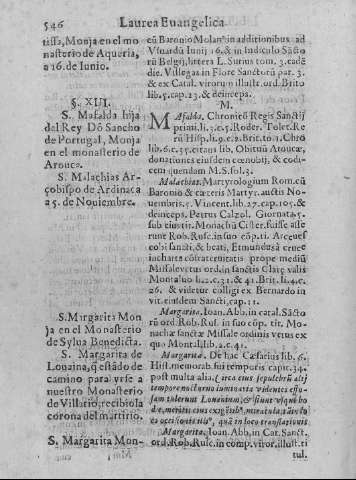 546
Laurea Euangelica
tissa, Monja en el mo
nasterio de Aqueria,
a 16. de Iunio.
§. XII.
S. Mafalda hija
del Rey Dõ Sancho
de Portugal, Monja
en el monasterio de
Arouca.
S. Malachias Ar-
çobispo de Ardinaca
a 5. de Noviembre.
S. Margarita Mon
ja en el Monasterio
de Sylua Benedicta.
S. Margarita de
Louaina, q̃ estãdo de
camino para yrse a
nuestro Monasterio
de Villario, recibio la
corona del martirio.
S. Margarita Mon-
cũ Baronio Molan⁹ in additionibus ad
Vsuardũ Iunij 16. & in Indiculo Sãcto
rũ Belgij, littera L. Surius tom. 3. eadẽ
die. Villegas in Flore Sanctorũ par. 3.
& ex Catal. virorum illustr. ord. Brito
lib. 5. cap. 13. & deinceps.
M.
Mafalda. Chronicõ Regis Sanctij
primi. li. 3. c. 5. Roder. Tolet. Re
rũ Hisp. li. 9. c. 2. Brit. to. 1. Chro
lib. 6. c. 35. citans lib. Obituũ Aroucæ,
donationes eiusdem cœnobij, & codi-
cem quendam M. S. fol. 3.
Malachias. Martyrologium Rom. cũ
Baronio & cæteris Martyr. auctis No-
uembris. 5. Vincent lib. 27. cap. 105. &
deinceps, Petrus Calzol. Giornata. 5.
sub eius tit. Monachũ Cister. fuisse asse
runt Rob. Rusc. in suo cõp. ti. Arcuesf
cobi sancti, & beati, Etmundusà cruce
incharta cõfraternitatis prope mediũ
Missaleuetus ord. in sanctis Claræ valis
Montaluo li. 2. c. 31. & 41. Brit. li. 4. c.
26. & videtur colligi ex Bernardo in
vit. eiusdem Sancti, cap. 11.
Margarita. Ioan. Abb. in catal. Sãcto
rũ ord. Rob. Rus. in suo cõp. tit. Mo-
nachæ sanctæ Missale ordinis vetus ex
quo Montal. lib. 2. c. 41.
Margarita. De hac Cæsarius lib. 6.
Hist. memorab. sui temporis capit. 34.
post multa alia. (circa eius sepulchrũ alij
tempore nocturno luminaria videntes effos
sam tulerunt Louanium, & fiunt vsque ho
die,
Margarita. Ioan. Abb. in Cat. Sanct.
ord. Rob. Rusc. in comp. viror. illust. ti
tul.